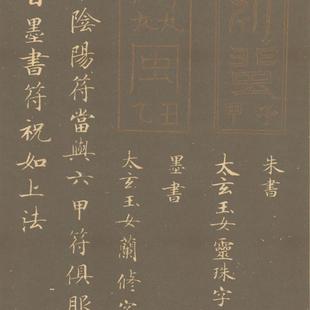 甲子
朱書
太玄玉女靈珠字
乙丑
墨書
太玄玉女蘭修字
陰陽符當與六甲符俱服
墨書符祝如上法